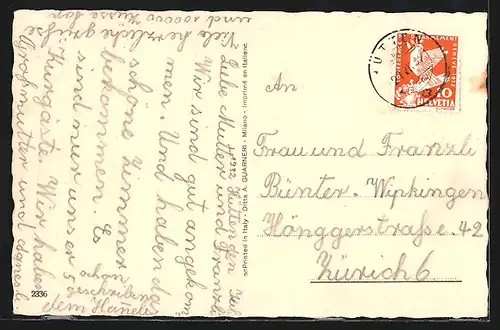 1932 Hütten den Juli
Liebe Mutter und Franzli
Wir sind gut angekom
men. Und haben das
schöne Zimmer
bekommen. Es
sind nur uns er 5
Kurgäste. Wir haben
schon
geschrieben
dem Haneli
Großmutter und Agnesli.
Viele herzliche grüsse
und 100000 Küsse von
2336
Printed in Italy - Ditta A. GUARNERI - Milano - Imprimé en Italie
10
HELVETIA
An
Frau und Franzli
Bünter-Wipkingen
Hönggerstraße 42
Zürich 6